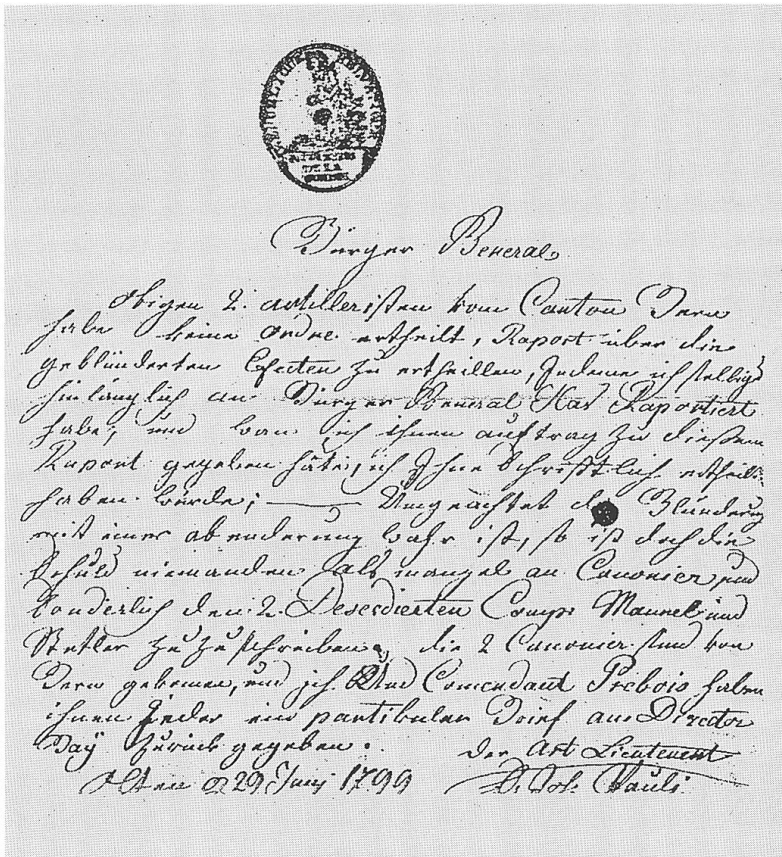 Bürger General
obigen 2. artilleristen vom Canton Bern
habe keine ordre ertheilt, Raport über die
geblünderten Efecten zu ertheillen, Indeme ich selbige
hinlänglich an Bürger General Raportiert
habe, und wan ich ihnen auftrag zu dießem
Raport gegeben häte, ich Ihne schriftlich ertheilt
haben würde; Ungeachtet die Blünderung
mit einer abenderung wahr ist, so ist doch die
schuld niemanden als mangel an Canonier, und
sonderlich den 2. Deserdierten Comp. Manuel und
Stetler zu zu schreiben, die 2 Canonier sind von
Bern gekomen, und ich und Comendant Probois haben
ihnen jeder ein partikular Brief an Director
Baÿ zurük gegeben.
der Art Lieutenent
Olten 29 Junÿ 1799
Joh. Pauli